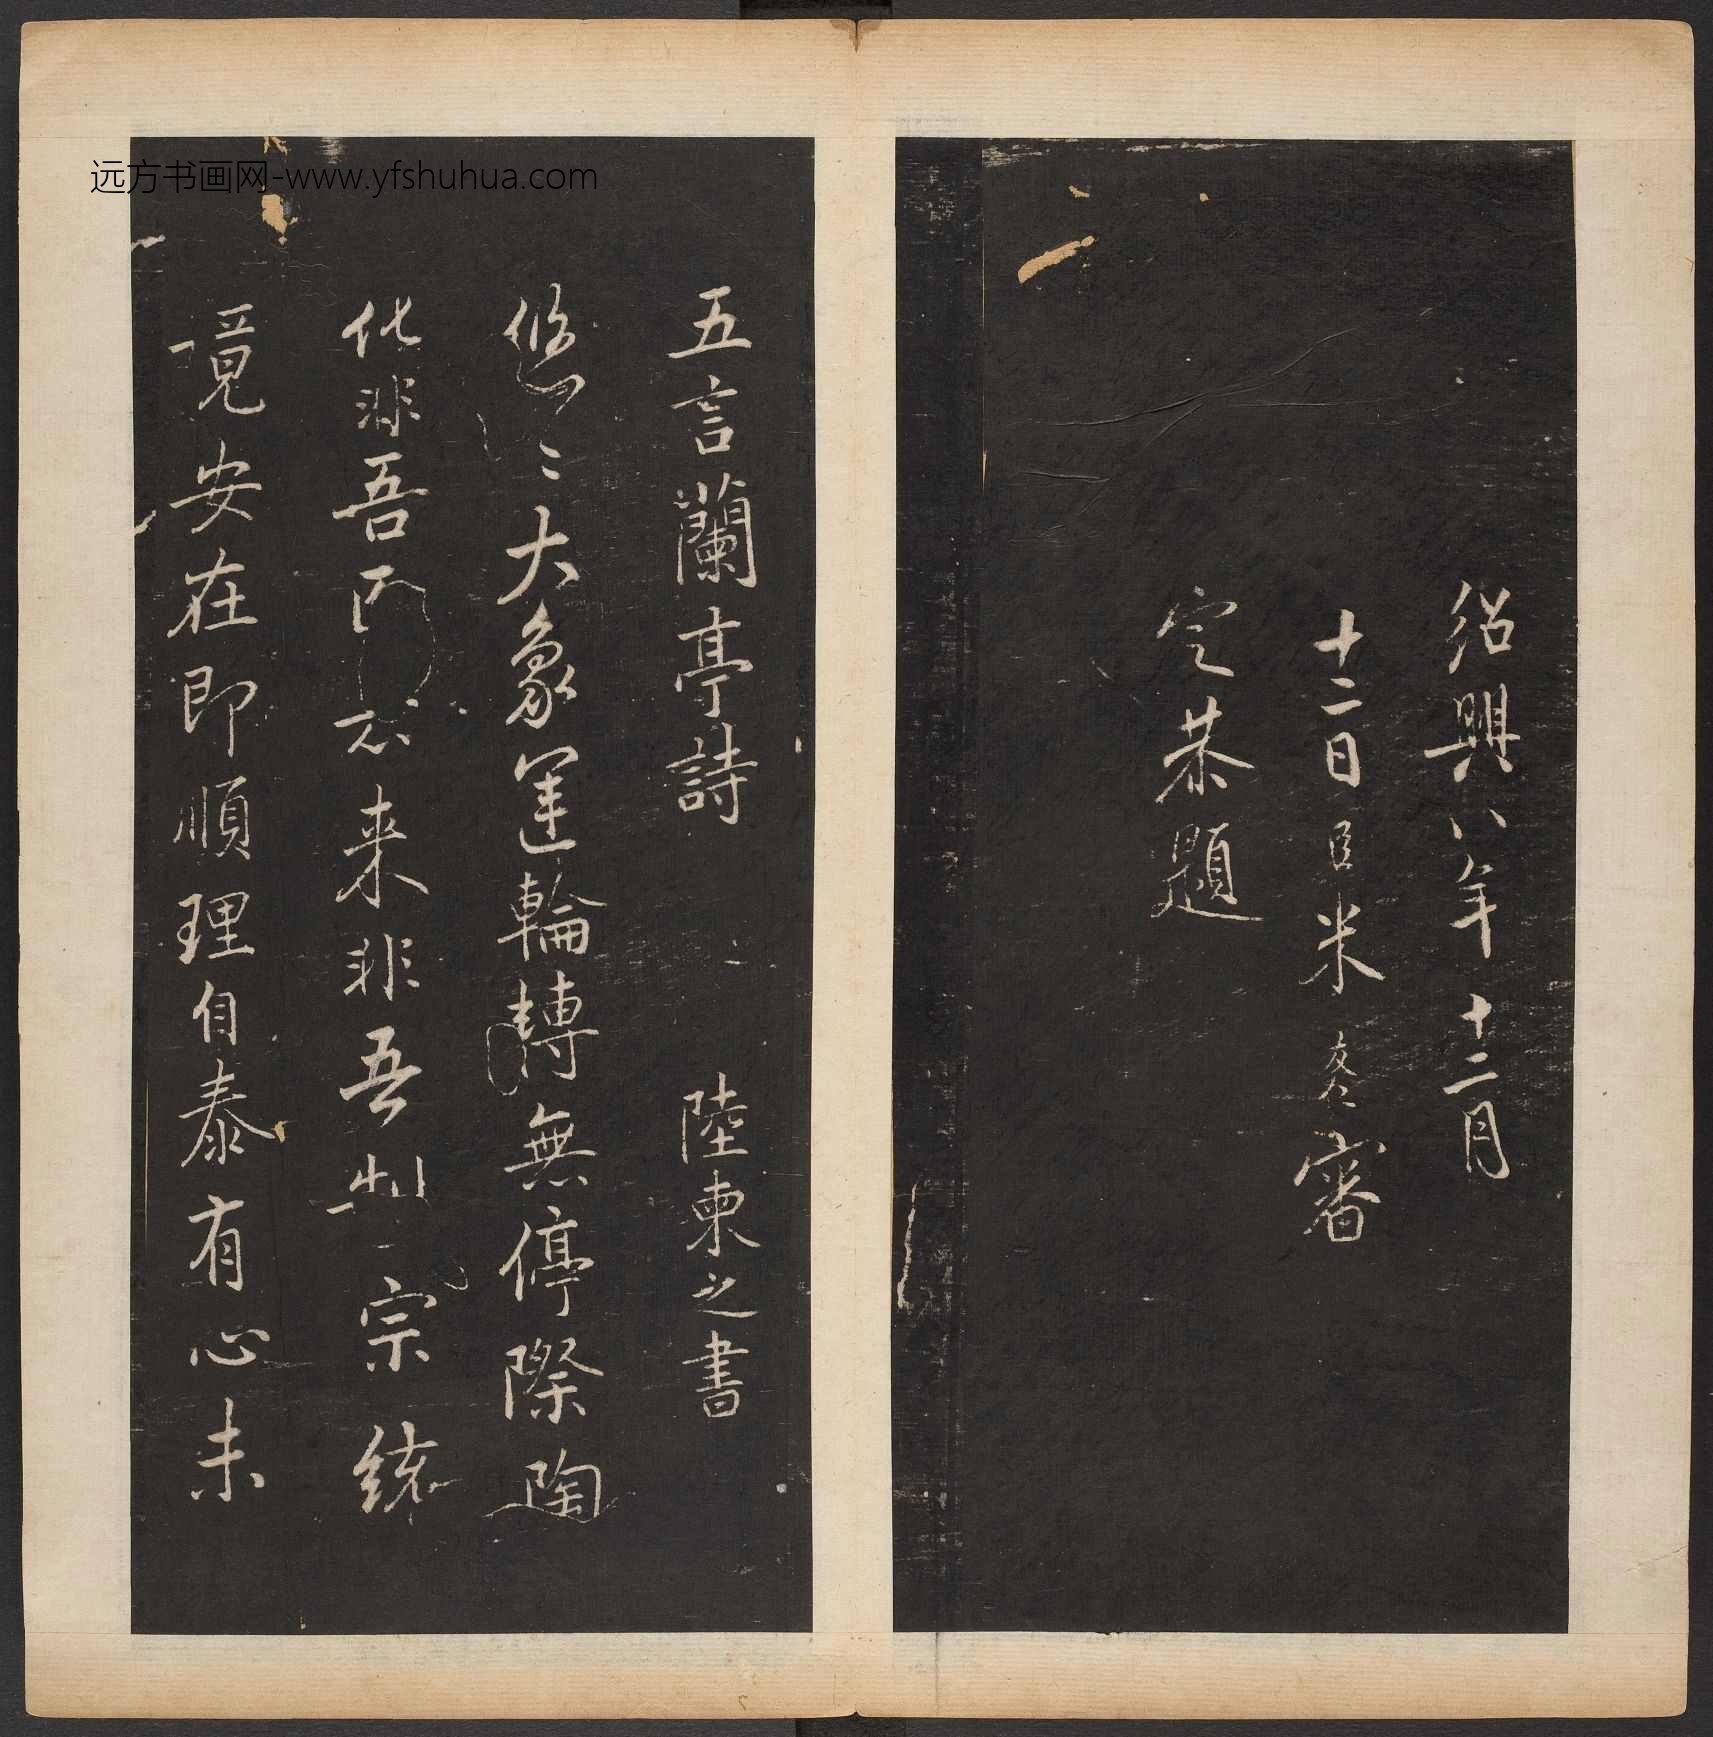 远方书画网-www.yfshuhua.com
紹興八年十二月
十二日臣米友仁審
定恭題
五言蘭亭詩 陸柬之書
悠〻大象運輪轉無停際陶
化非吾因去来非吾制宗統
竟安在即順理自泰有心未